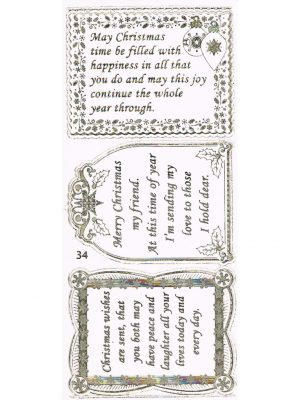 May Christmas
time be filled with
happiness in all that
you do and may this joy
continue the whole
year through.
Merry Christmas
my friend.
At this time of year
I'm sending my
love to those
I hold dear.
34
Christmas wishes
are sent, that
you both may
have peace and
laughter all your
lives today and
every day.